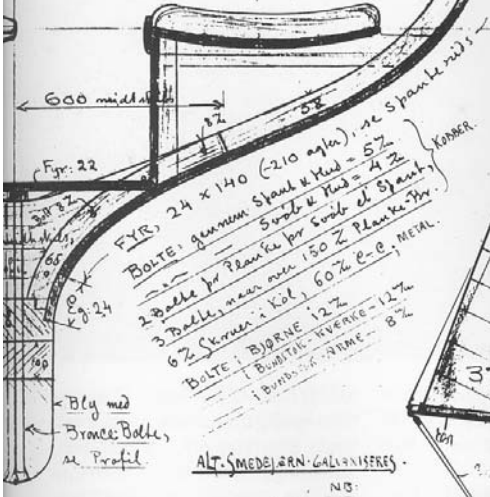 600 midtskibs
8%
58
Fyr: 22
FYR, 24 x 140 (-210 agter), se spanterids
BOLTE: gennem Spant & Hud = 5%
Svøb & Hud = 4%
KOBBER.
2 Bolte pr Planke pr Svøb el Spant,
3 Bolte, naar over 150% Planke-Br.
6% Skruer i Køl, 60% C-C, METAL.
BOLTE i BJØRNE 12%
i BUNDSTOK-KVERKE - 12%
i BUNDSTOK-ARME - 8%
65
Eg: 24
100
Bly med
Bronce-Bolte,
se Profil
ALT-SMEDEJERN-GALVANISERES.
NB:
3